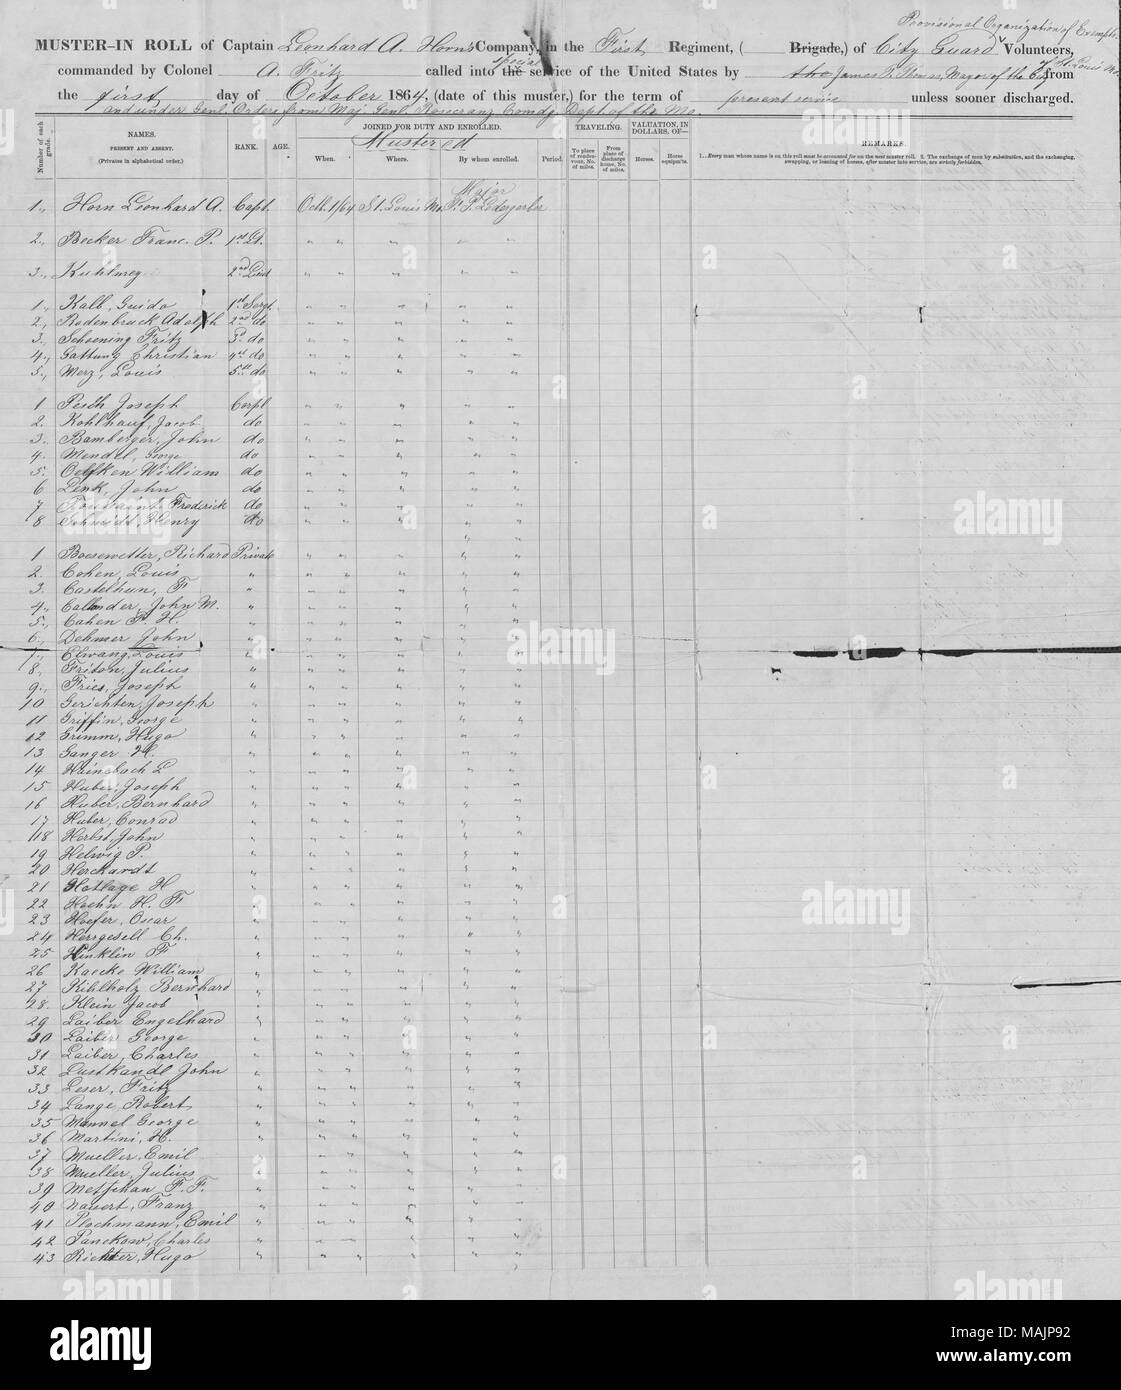 Provisional Organization of Exempts
MUSTER-IN ROLL of Captain Leonhard A. Horn's Company, in the First Regiment, ( Brigade,) of City Guard Volunteers,
of St. Louis Mo.
commanded by Colonel A. Fritz called into the special service of the United States by the James S. Thomas, Mayor of the City from
the first day of October 1864, (date of this muster,) for the term of present service unless sooner discharged.
and under Genl. Orders from Maj. Genl. Rosecranz Comdg. Dept. of the Mo.
Number of each grade.
NAMES.
PRESENT AND ABSENT.
(Privates in alphabetical order.)
RANK.
AGE.
JOINED FOR DUTY AND ENROLLED.
Mustered
When.
Where.
By whom enrolled.
Period.
TRAVELING.
To place of rendezvous, No. of miles.
From place of discharge home, No. of miles.
VALUATION, IN DOLLARS, OF—
Horses.
Horse equipm'ts.
REMARKS.
1...Every man whose name is on this roll must be accounted for on the next muster roll. 2. The exchange of men by substitution, and the exchanging, swapping, or loaning of horses, after muster into service, are strictly forbidden.
Major
1., Horn Leonhard A. Capt. Octb. 1/64 St. Louis Mo.
2., Becker Franc. P. 1st Lt. " " " " "
3., Kuhlmey 2nd Lieut " " " " "
1., Kalb, Guido 1st Sergt. " " " " "
2., Rodenbruck Adolph 2nd do " " " " "
3., Schoening Fritz 3d. do " " " " "
4., Gattung Christian 4th do " " " " "
5., Merz, Louis 5th do " " " " "
1 Pesch Joseph Corpl " " " " "
2. Kohlhauf, Jacob do " " " " "
3., Bamberger, John do " " " " "
4. Mendel, George do " " " " "
5. Oelfken William do " " " " "
6 Lenk, John do " " " " "
7 Toussaint, Frederick do " " " " "
8 Schmidt, Henry do " " " " "
1 Boesewetter, Richard Private " " " " "
2. Cohen, Louis " " " " " "
3. Castelhun, F " " " " " "
4., Callender, John M. " " " " " "
5., Cahen F. H. " " " " " "
6., Dehmer John " " " " " "
7., Elwang, Louis " " " " " "
8, Friton, Julius " " " " " "
9., Fries, Joseph " " " " " "
10 Gerichten, Joseph " " " " " "
11 Griffin, George " " " " " "
12 Grimm, Hugo " " " " " "
13 Ganger H. " " " " " "
14 Hainsbach L " " " " " "
15 Huber, Joseph " " " " " "
16 Huber, Bernhard " " " " " "
17 Huber, Conrad " " " " " "
18 Herbst, John " " " " " "
19 Helwig P. " " " " " "
20 Herckardt " " " " " "
21 Hotlage H " " " " " "
22 Hoehn H. F " " " " " "
23 Hoefer, Oscar " " " " " "
24 Herrgesell Ch. " " " " " "
25 Hinklin F " " " " " "
26 Kaecke William " " " " " "
27 Kihlholz Bernhard " " " " " "
28. Klein Jacob " " " " " "
29 Laiber Engelhard " " " " " "
30 Laiber George " " " " " "
31 Laiber, Charles " " " " " "
32 Lustkandl John " " " " " "
33 Leser, Fritz " " " " " "
34 Lange, Robert " " " " " "
35 Mannel George " " " " " "
36 Martini, H. " " " " " "
37 Mueller, Emil " " " " " "
38 Mueller, Julius " " " " " "
39 Metschan F. F. " " " " " "
40 Nasert, Franz " " " " " "
41 Plochmann, Emil " " " " " "
42 Panckow, Charles " " " " " "
43 Richter, Hugo " " " " " "
alamy
alamy
Image ID: MAJP92
www.alamy.com